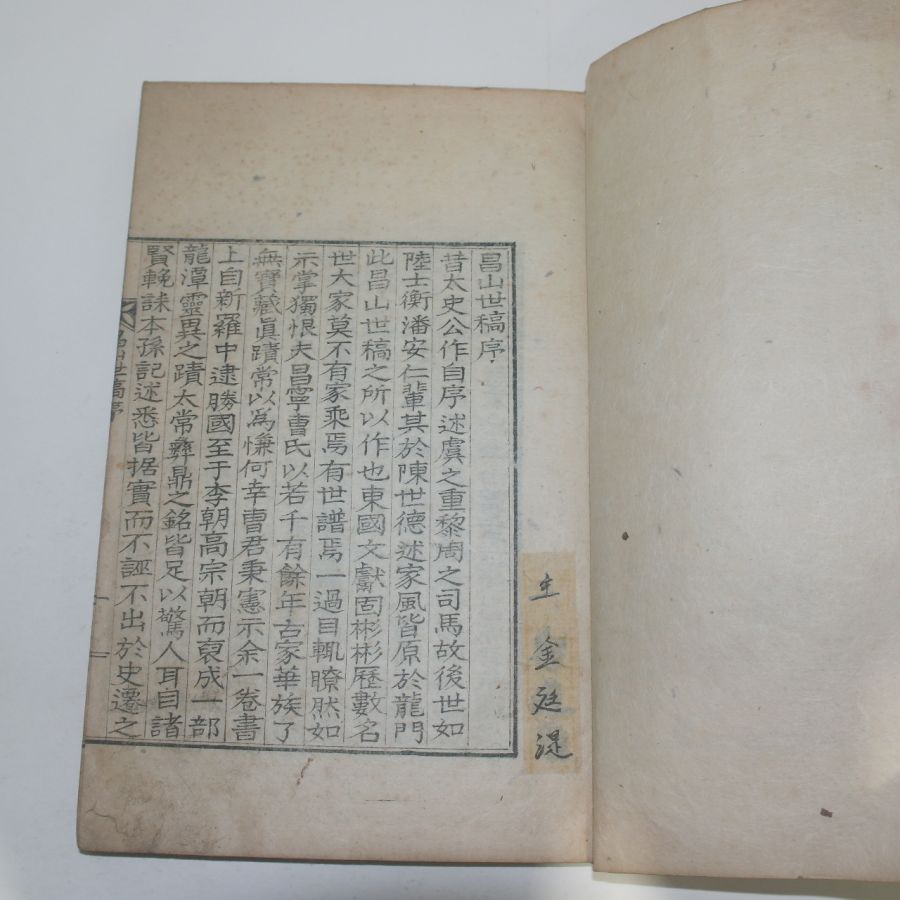 昌山世稿序
昔太史公作自序述虞之重黎周之司馬故後世如
陸士衡潘安仁輩其於陳世德述家風皆原於龍門
此昌山世稿之所以作也東國文獻固彬彬歷數名
世大家莫不有家乘焉有世譜焉一過目輒瞭然如
示掌獨恨夫昌寧曺氏以若千有餘年古家華族了
無寶藏眞蹟常以爲慊何幸曺君秉憲示余一卷書
上自新羅中逮勝國至于李朝高宗朝而裒成一部
龍潭靈異之蹟太常彝鼎之銘皆足以驚人耳目諸
賢輓誄本孫記述悉皆据實而不誣不出於史遷之
昌山世稿序
主 金 廷 湜